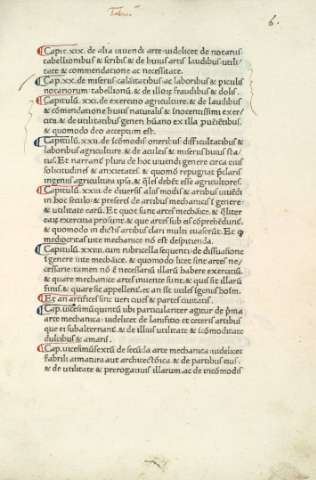 6.
Capit̃. xix. de alia iuuendi arte. uidelicet de notariis
tabellionibus & scribis & de huius artis laudibus utili-
tate & commendatione ac necessitate.
Cap. xx. de miseriis calamitatibus ac laboribus & piculis
notariorum. tabellionũ. & de illorũ fraudibus & dolis.
Capitulũ. xxi. de exercitio agriculture. & de laudibus
& cõmendatione huius naturalis & inocentissimi exer-
citii. & de utilitatibus generi hũano ex illa puẽietibus.
& quomodo deo acceptum est.
Capitulũ. xxii. de icõmodis oneribus difficultatibus &
laboribus agriculture. & de aculeis & miseriis huius sta-
tus. Et narrant̃ plura de hoc uiuendi genere circa eius
solicitudines & anxietates. & quomodo repugnat p̃claris
ingeniis agricultura ipsa. & q̃les debẽt esse agricultores.
Capitulũ. xxiii. de diuersis aliis modis & artibus uiuẽdi
in hoc seculo. & preserti de artibus mechanicis ĩ genere
& utilitate earũ. Et quot sunt artes mechãice. & q̃liter
earũ exercitia prosunt. & que artes sub eis cõprehẽdunt̃.
& quomodo in dictis artibus clari multi euaserũt. Et q̃
mediocritas uite mechanice nõ est despicienda.
Capitulũ. xxiiii. cum rubricella sequenti. de diffinitione
ĩ genere uite mechãice. & quomodo licet sint artes ne-
cessarie. tamen nõ ẽ necessariũ illarũ habere exercitiũ.
& quare mechanice artes inuente sunt. & quis sit illarũ
finis. & quare sic appellent̃. et an sit utilis egenis hõibus.
Et an artifices sint ueri ciues & partes ciuitatis.
Cap. uicesimũquintũ. ubi particulariter agitur de p̃ma
arte mechanica. uidelicet de lanificio et ceteris artibus
que ei subalternant̃. & de illius utilitate & icõmoditate
dulcibus & amaris.
Cap. uicesimũsextũ. de secũda arte mechanica. uidelicet
fabrili armatura aut architectõica. & de partibus eius.
& de utilitate & prerogatiuis illarum. ac de incõmodis